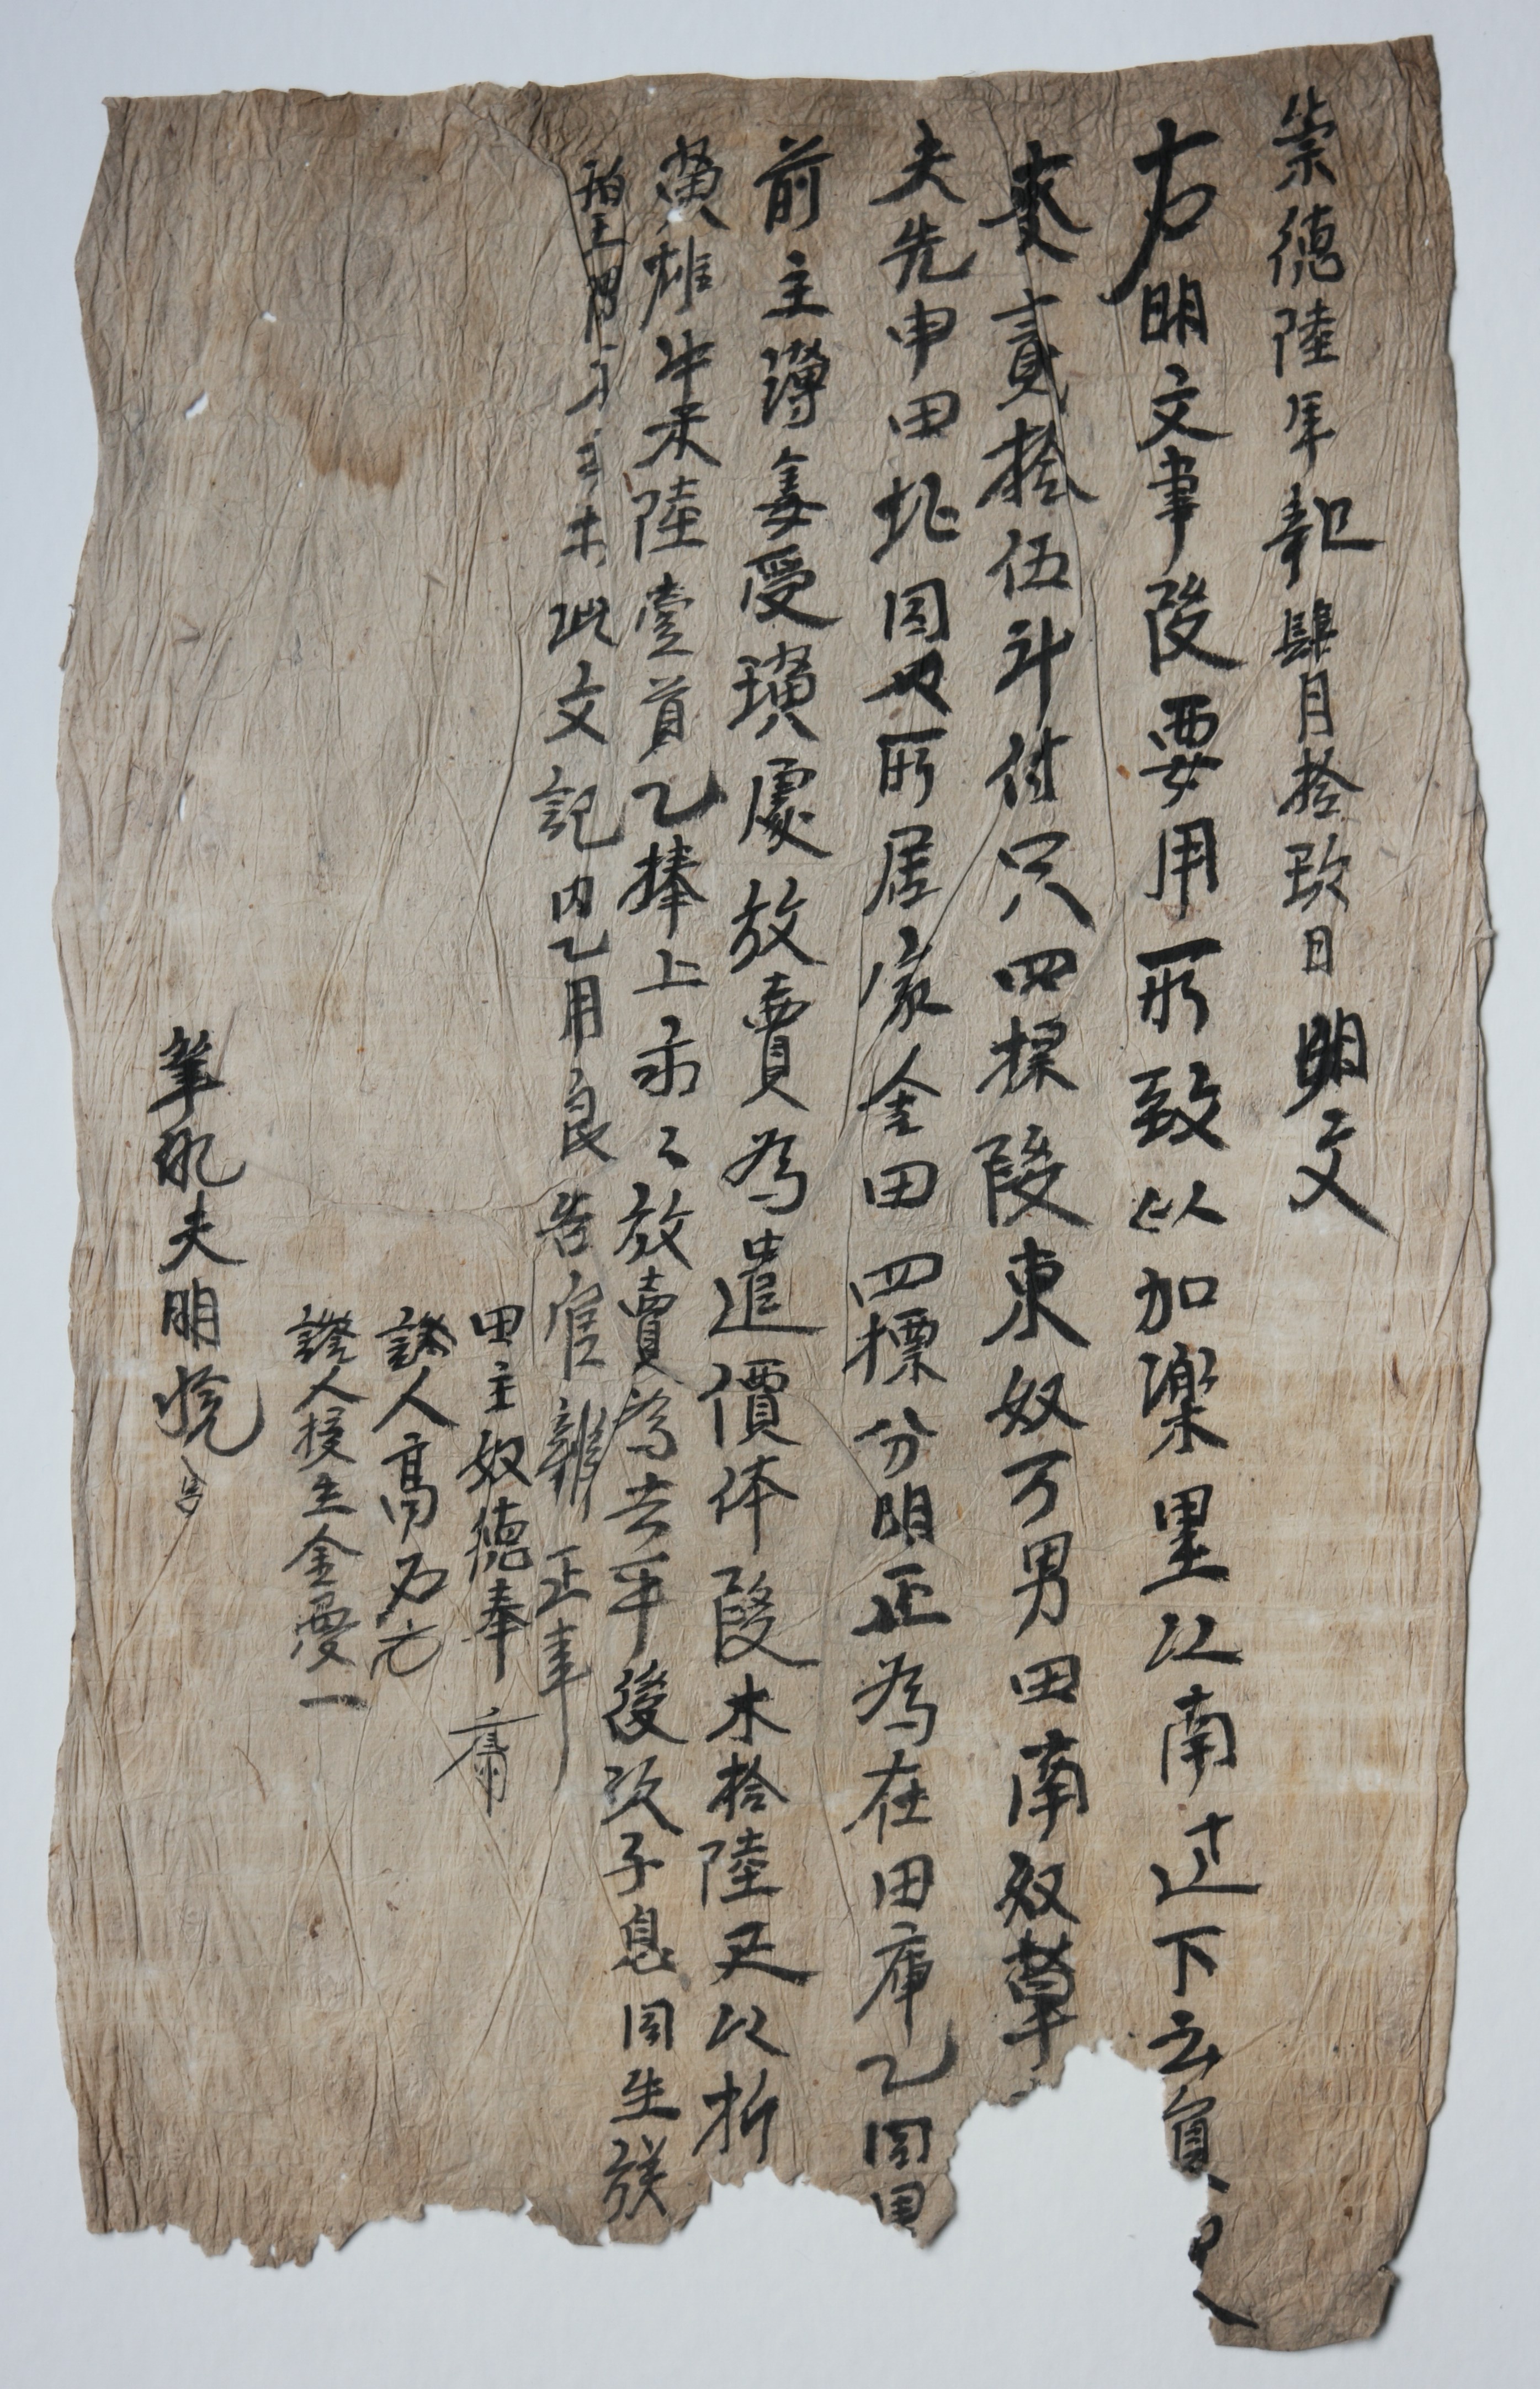 崇德陸年辛巳肆月拾玖日明文
右明文事段要用所致以加染里江南辺下云員
麥貳拾伍斗付只四標段東奴万男田南奴
夫先申田北同 所居家金田四標分明正為在田庫乙同
前主簿姜受璜處放賣為遣價体段木拾陸疋以折
黃雄牛禾陸壹首乙捧上示〻放賣為去乎後次子息同生族
此文記內乙用良告官辨正事
田主奴德奉
證人高石
證人校生金愛一
筆執夫明悅